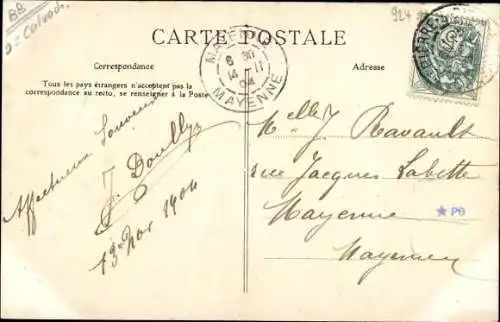 BB
= Calvados
924
CARTE POSTALE
Correspondance
Adresse
Tous les pays étrangers n'acceptent pas la
correspondance au recto, se renseigner à la Poste
MAYENNE
6 30
14 - 11
04
MAYENNE
Affectueux Souvenir
J. Doully
13 Nov 1904
Melle J. Ravault
rue Jacques Labitte
Mayenne
★ PB
Mayenne